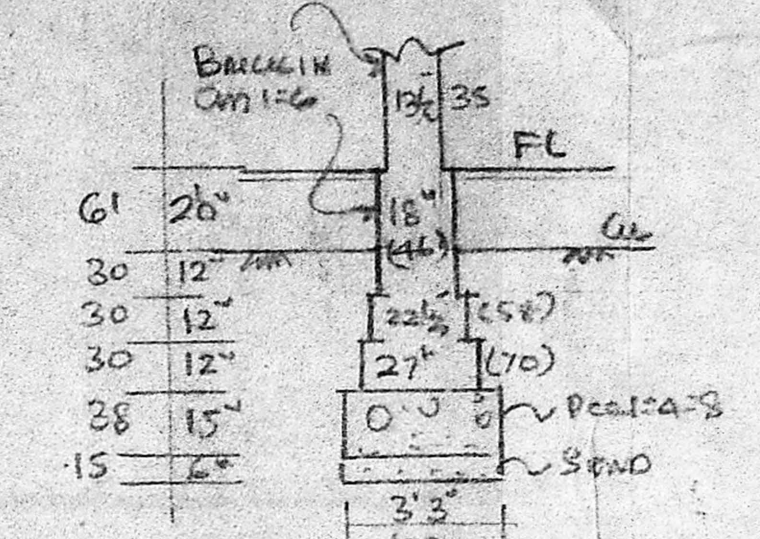 BRICK IN
CM 1=6
13½" 35
FL
61 2'0" 18"
(46) GL
30 12"
30 12" 22½" (58)
30 12" 27" (70)
38 15" PCC 1=4=8
15 6" SAND
3'3"